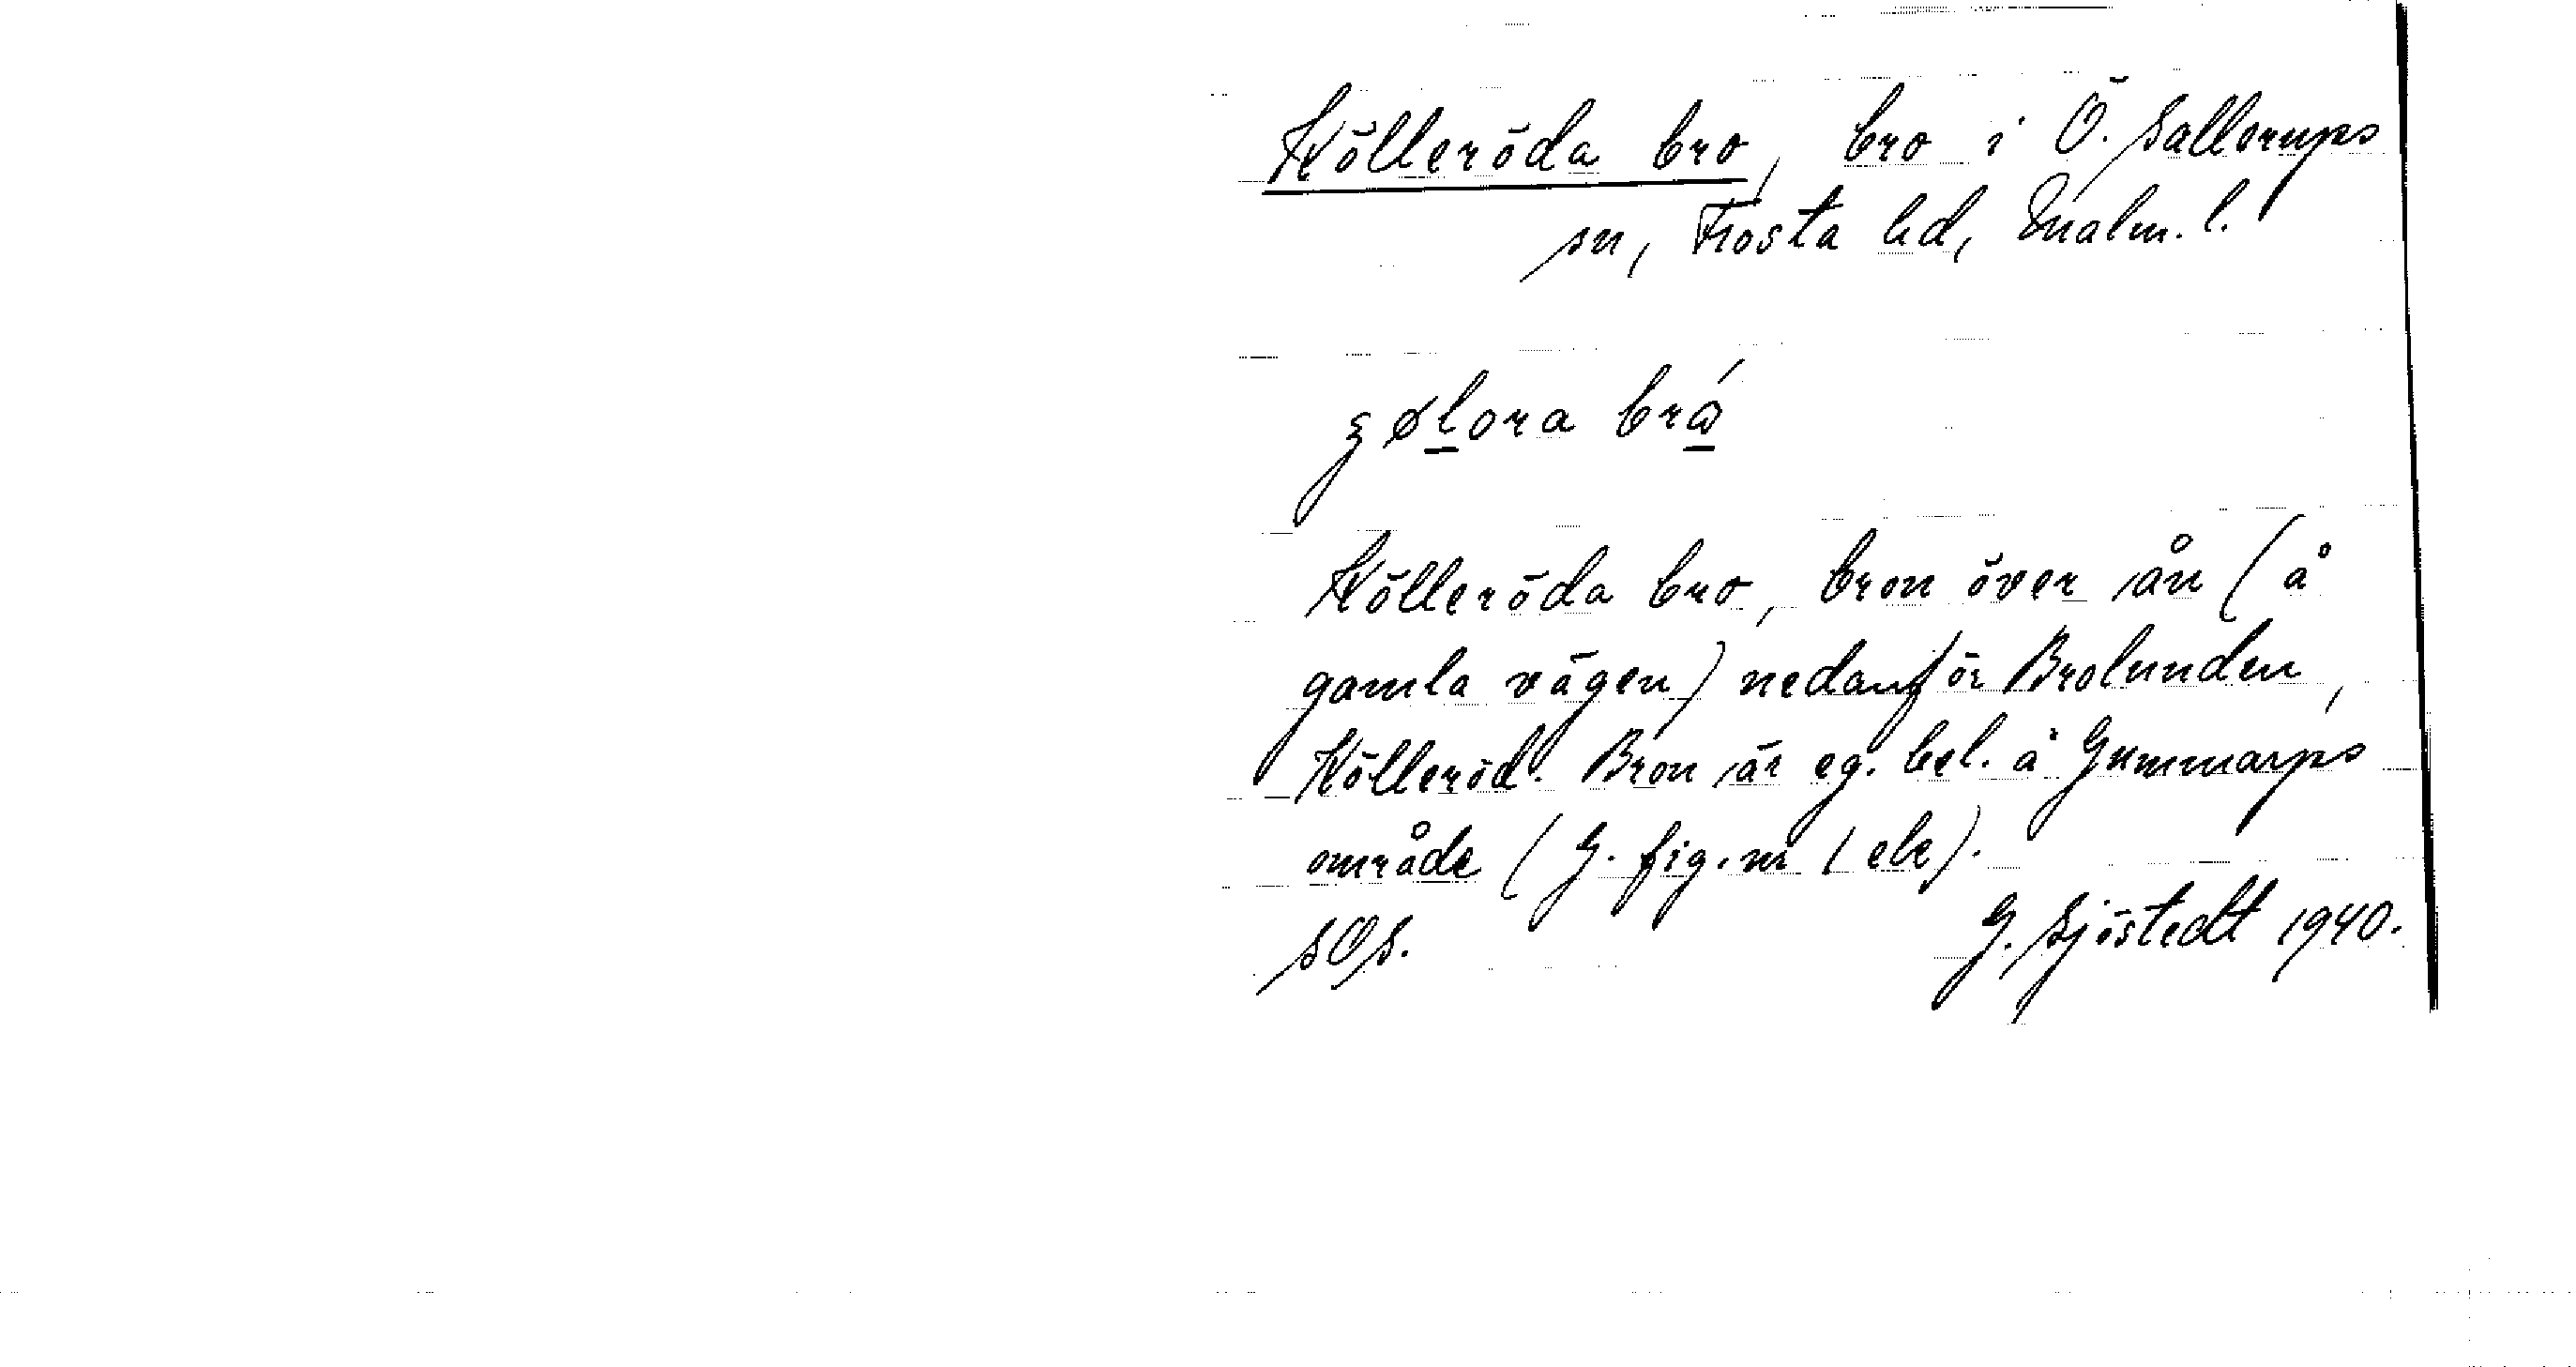 Kölleröda bro, bro i Ö. Sallerups
sn, Frosta hd, Malm. l.
ʒølora brá
Kölleröda bro, bron över ån (å
gamla vägen) nedanför Brolunden,
Kölleröd. Bron är eg. bel. å Gummarps
område (G. fig. nr 1 ek).
SOS. G. Sjöstedt 1940.